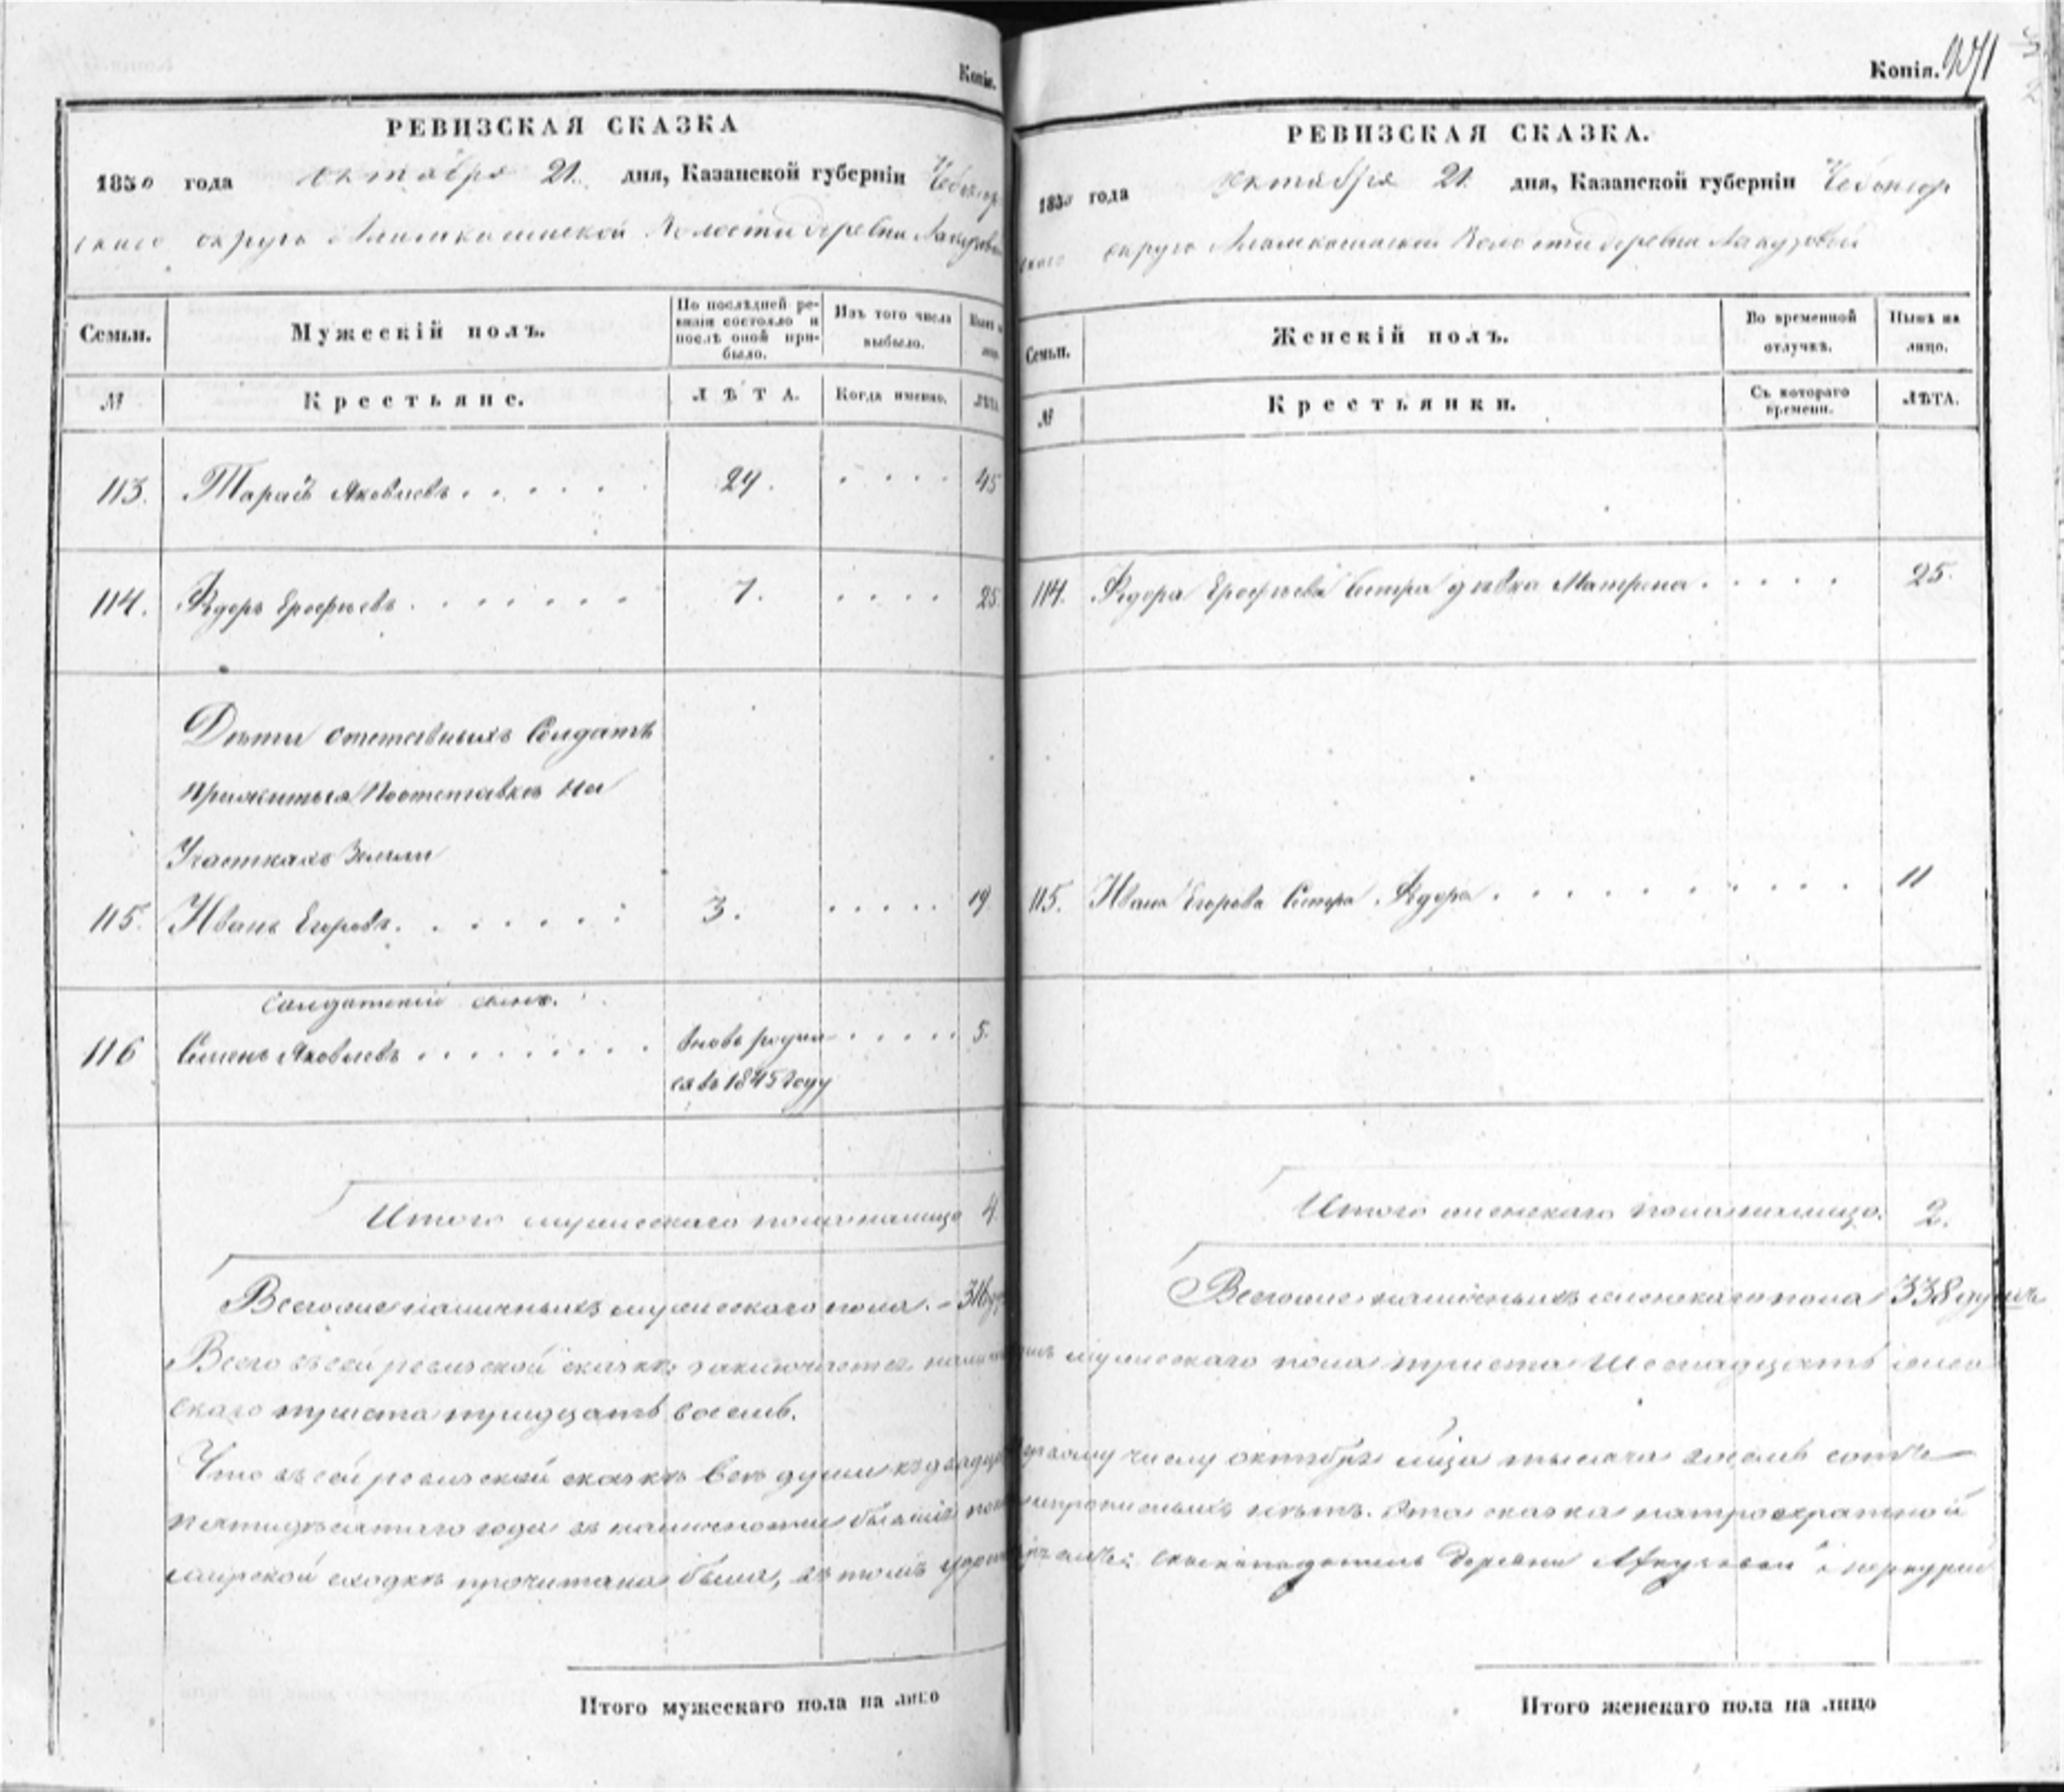 Копія.
РЕВИЗСКАЯ СКАЗКА
1850 года октября 21. дня, Казанской губерніи Чебоксар
скаго округа волости деревни
Семьи. Мужескій полъ. По послѣдней ревизіи состояло и послѣ оной прибыло. Изъ того числа выбыло. Нынѣ на лицо.
№ Крестьяне. ЛѢТА. Когда именно. ЛѢТА.
113. Тарасъ Яковлевъ 24. 45
114. Ѳедоръ Ерофѣевъ 7. 25.
Дѣти отставныхъ Солдатъ
прижитыя По отставкѣ на
Участкахъ Земли
115. Иванъ Егоровъ 3. 19
Солдатскій сынъ.
116 Семенъ Яковлевъ вновь родил 5.
ся въ 1845 году
Итого мужескаго пола на лицо 4.
Всего же наличныхъ мужескаго пола. 316
Всего въ сей ревизской сказкѣ заключается
скаго триста тридцать восемь.
Что въ сей ревизской сказкѣ всѣ души къ двадца
пятидесятаго года въ наличности бывшіе
мирской сходкѣ прочитана была, въ томъ
Итого мужескаго пола на лицо
Копія. 271
РЕВИЗСКАЯ СКАЗКА.
1850 года октября 21. дня, Казанской губерніи Чебоксар
скаго округа волости деревни
Семьи. Женскій полъ. Во временной отлучкѣ. Нынѣ на лицо.
№ Крестьянки. Съ котораго времени. ЛѢТА.
114. Ѳедора Ерофѣева Сестра дѣвка Матрена 25.
115. Ивана Егорова Сестра Ѳедора 11
Итого женскаго пола на лицо. 2.
Всего же наличныхъ женскаго пола 338 душъ
мужескаго пола триста Шестнадцать женс
первому числу октября мѣсяца тысяча восемь сотъ
непрописныхъ нѣтъ. Эта сказка на троекратной
деревни
Итого женскаго пола на лицо